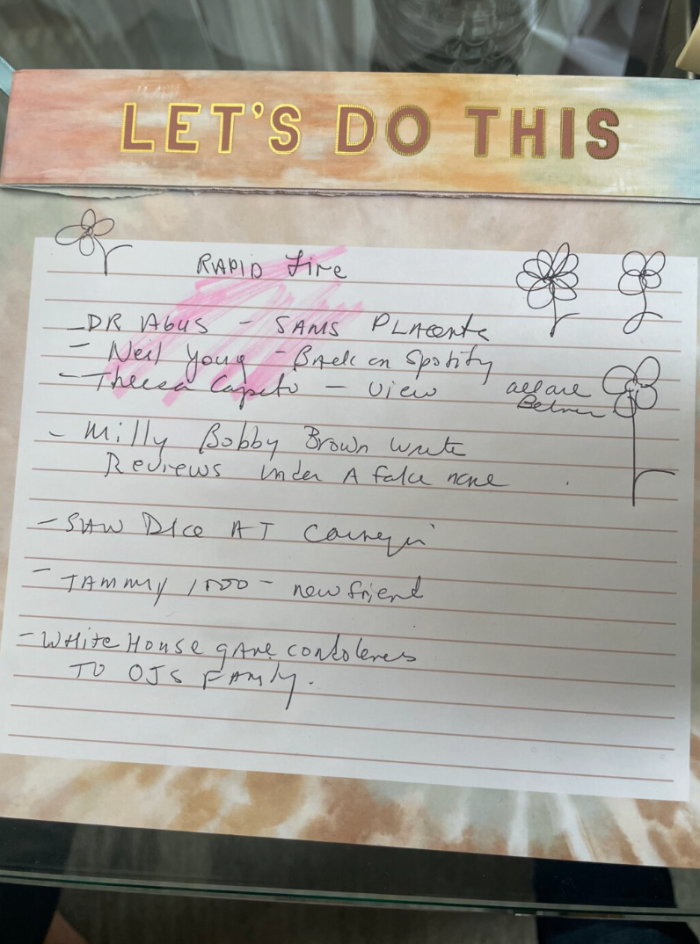 LET'S DO THIS
RAPID Fire
- DR Abus - SAMS PLAcenta
- Neil Young - BAck on Spotify
- Caputo - View all are
- Milly Bobby Brown write
Reviews under A fake name
- SAW DIce AT
- TAMMY - new friend
- WHite House gave condolences
TO OJS FAMly.